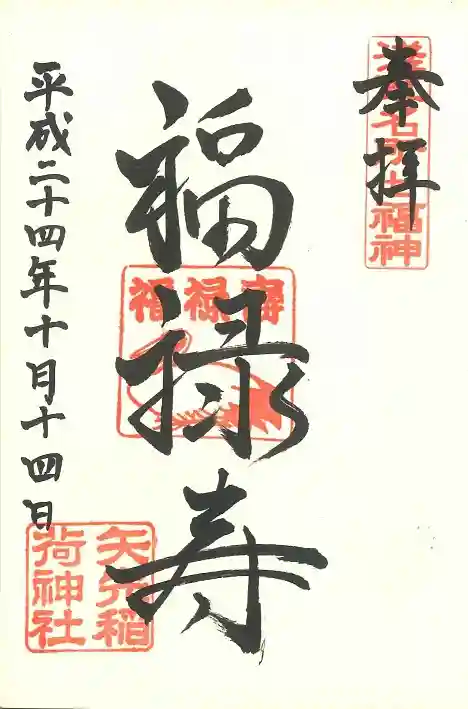 奉拝
七福神
福禄寿
福禄壽
平成二十四年十月十四日
矢先稲
荷神社